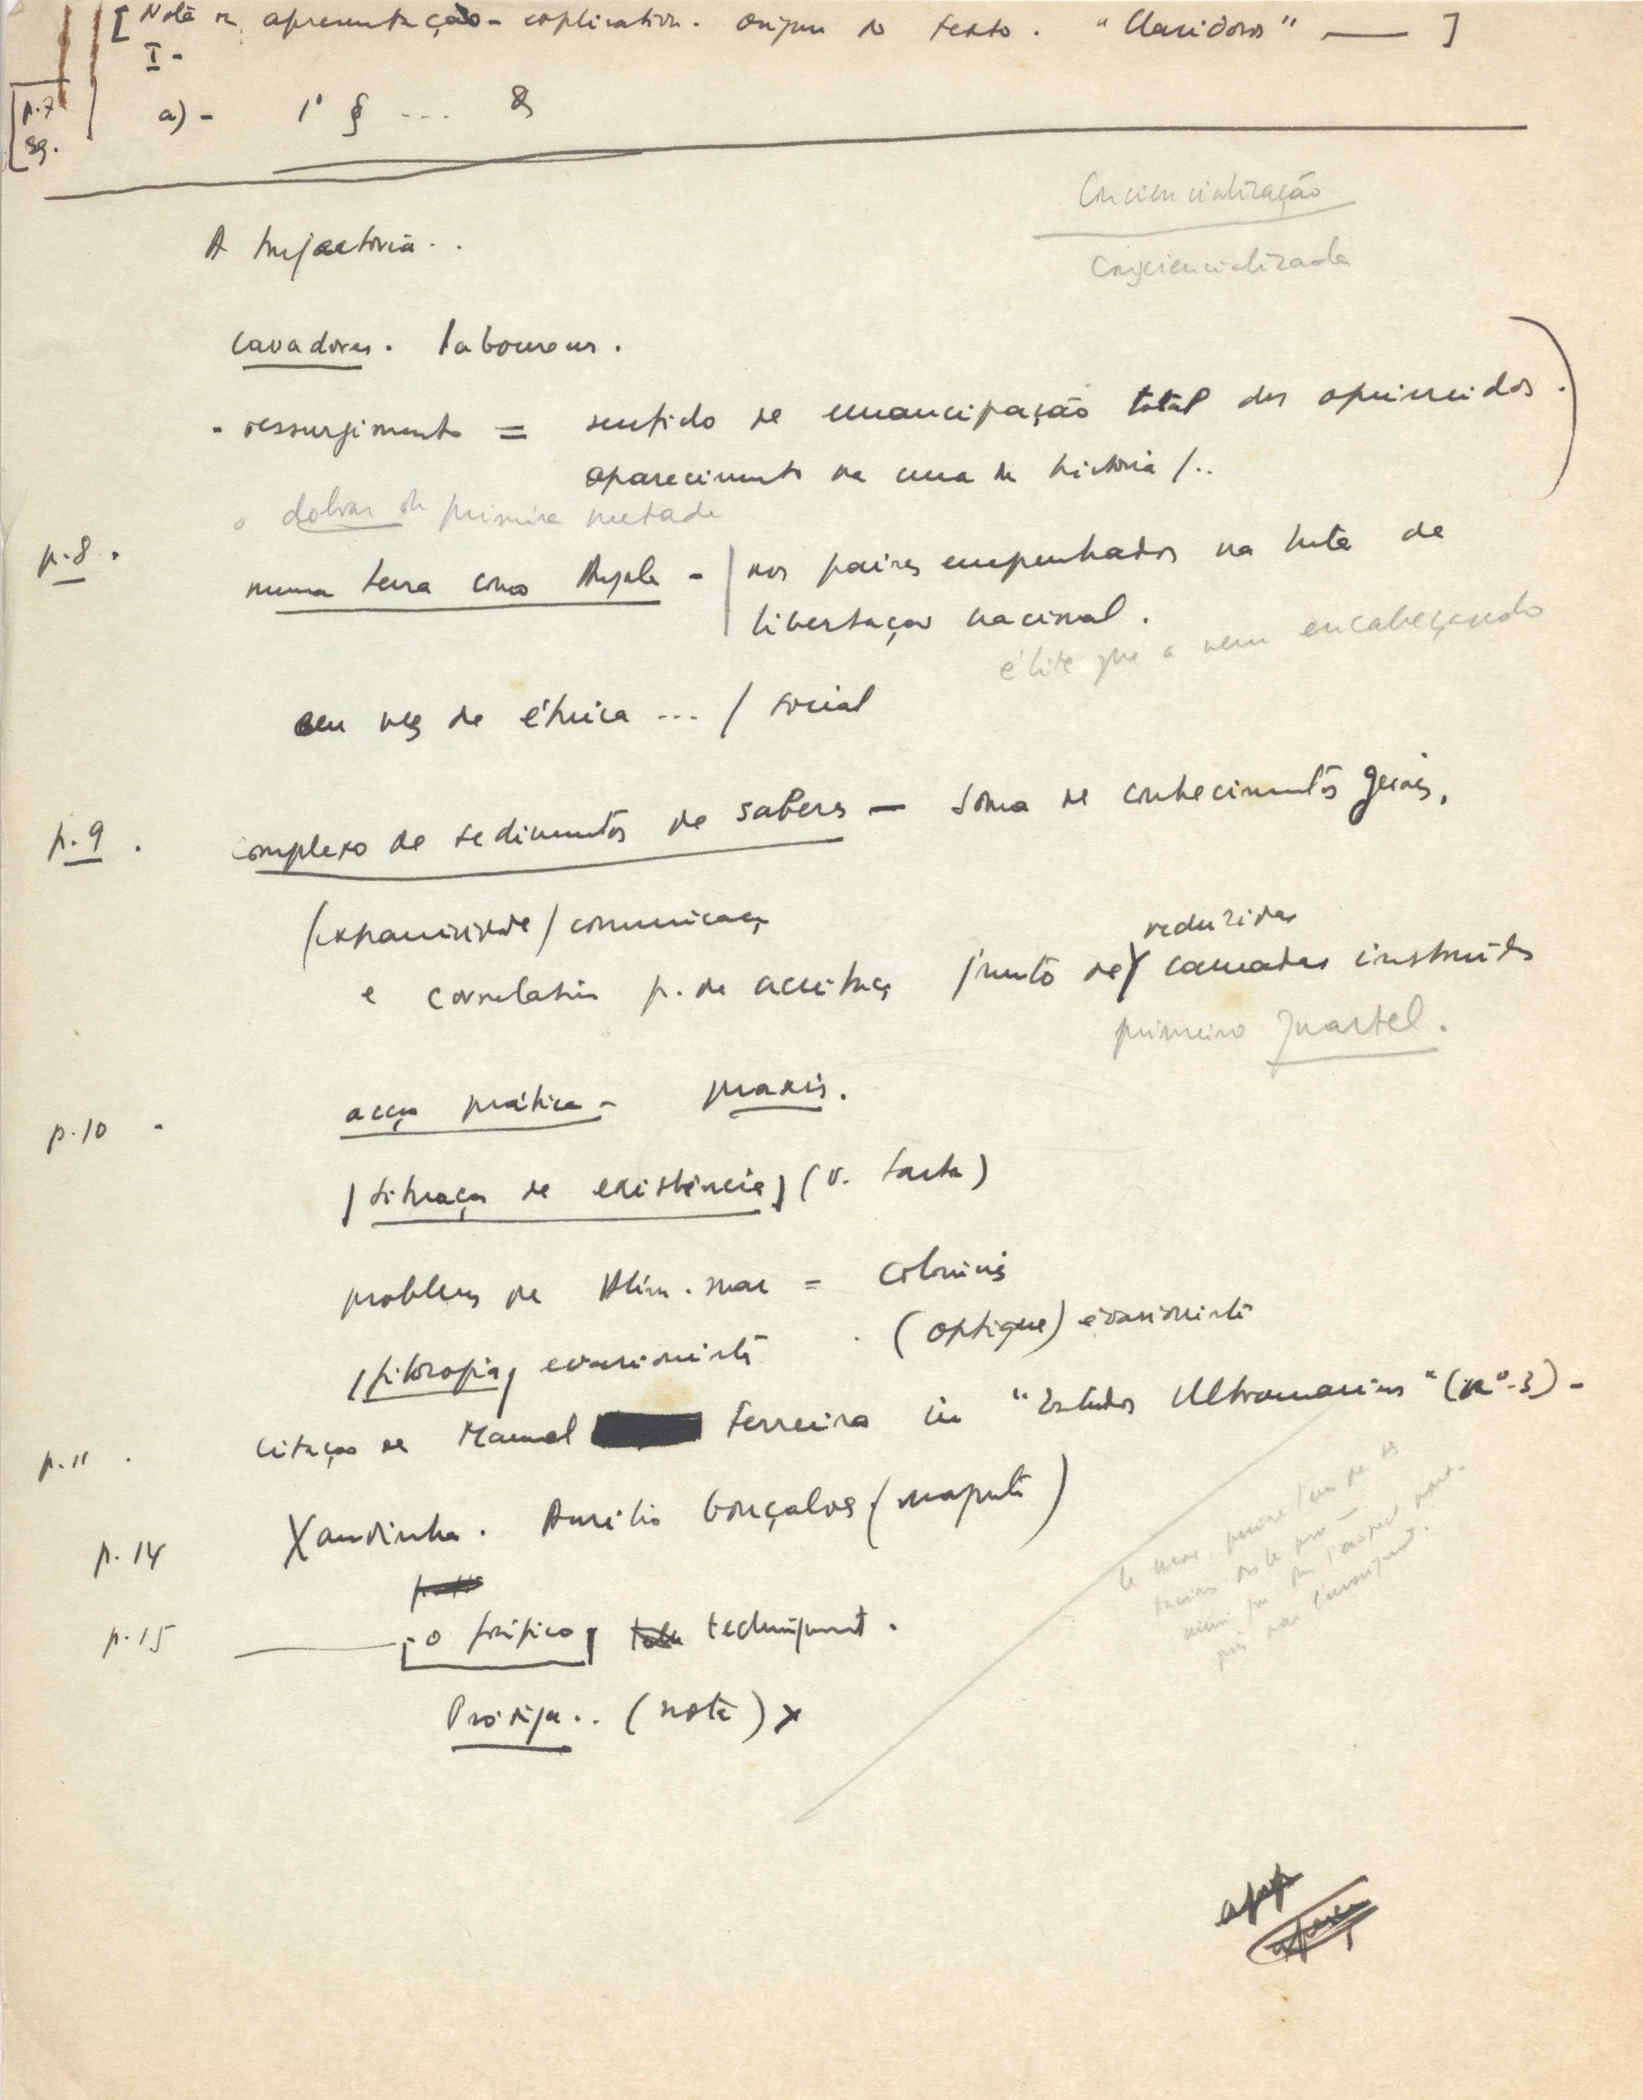 [ Nota de apresentação - explicativa. Origem do texto. "Claridosos" — ]
I -
[p. 7
sg.
a) - 1º § ...
Consciencialização
A trajectória..
Consciencializada
cavadores. laboureurs.
- ressurgimento = sentido de emancipação total dos oprimidos.
aparecimento na cena da história /..
o dobrar da primeira metade
p. 8. numa terra como Angola - | nos países empenhados na luta de
libertação nacional.
élite que a vem encabeçando
em vez de étnica ... / social
p. 9. complexo de sedimentos de saberes — soma de conhecimentos gerais.
(expansividade / comunicaç
reduzidas
e correlativa p. de aceitaç junto de camadas instruídas
primeiro quartel.
p. 10 - acção prática - praxis.
[situação de existência] (v. Sartre)
problemas de Além-mar = coloniais
[filosofia] evasionista . (optique) évasionniste
p. 11. citação de Manuel Ferreira in "Estudos Ultramarinos" (nº-3) -
p. 14 Xandinha. Aurélio Gonçalves (maputa)
p. 15 — [o prolífico] techniquemt.
Pródiga.. (nota) x